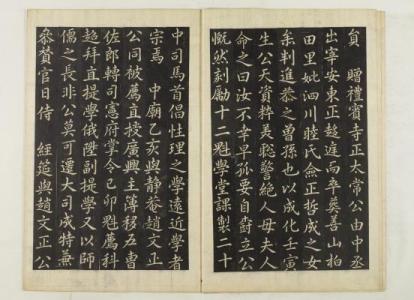 貟 贈禮賓寺正太常公由中丞
出宰安東正赴庭而卒葬善山柏
田里妣泗川睦氏僉正哲成之女
叅判進恭之曾孫也以成化壬寅
生公天資粹美聡鑒絶人母夫人
命之曰汝不幸早孤要自樹立公
慨然刻勵十二魁學堂課製二十
中司馬首倡性理之學遠近學者
宗焉 中廟乙亥與靜菴趙文正
公同被薦直授廣興主簿移五曹
佐郎轉司憲府掌令己卯魁薦科
超拜直提學俄陞副提學又以師
儒之長非公莫可遷大司成特兼
叅賛官日侍 經筵與趙文正公